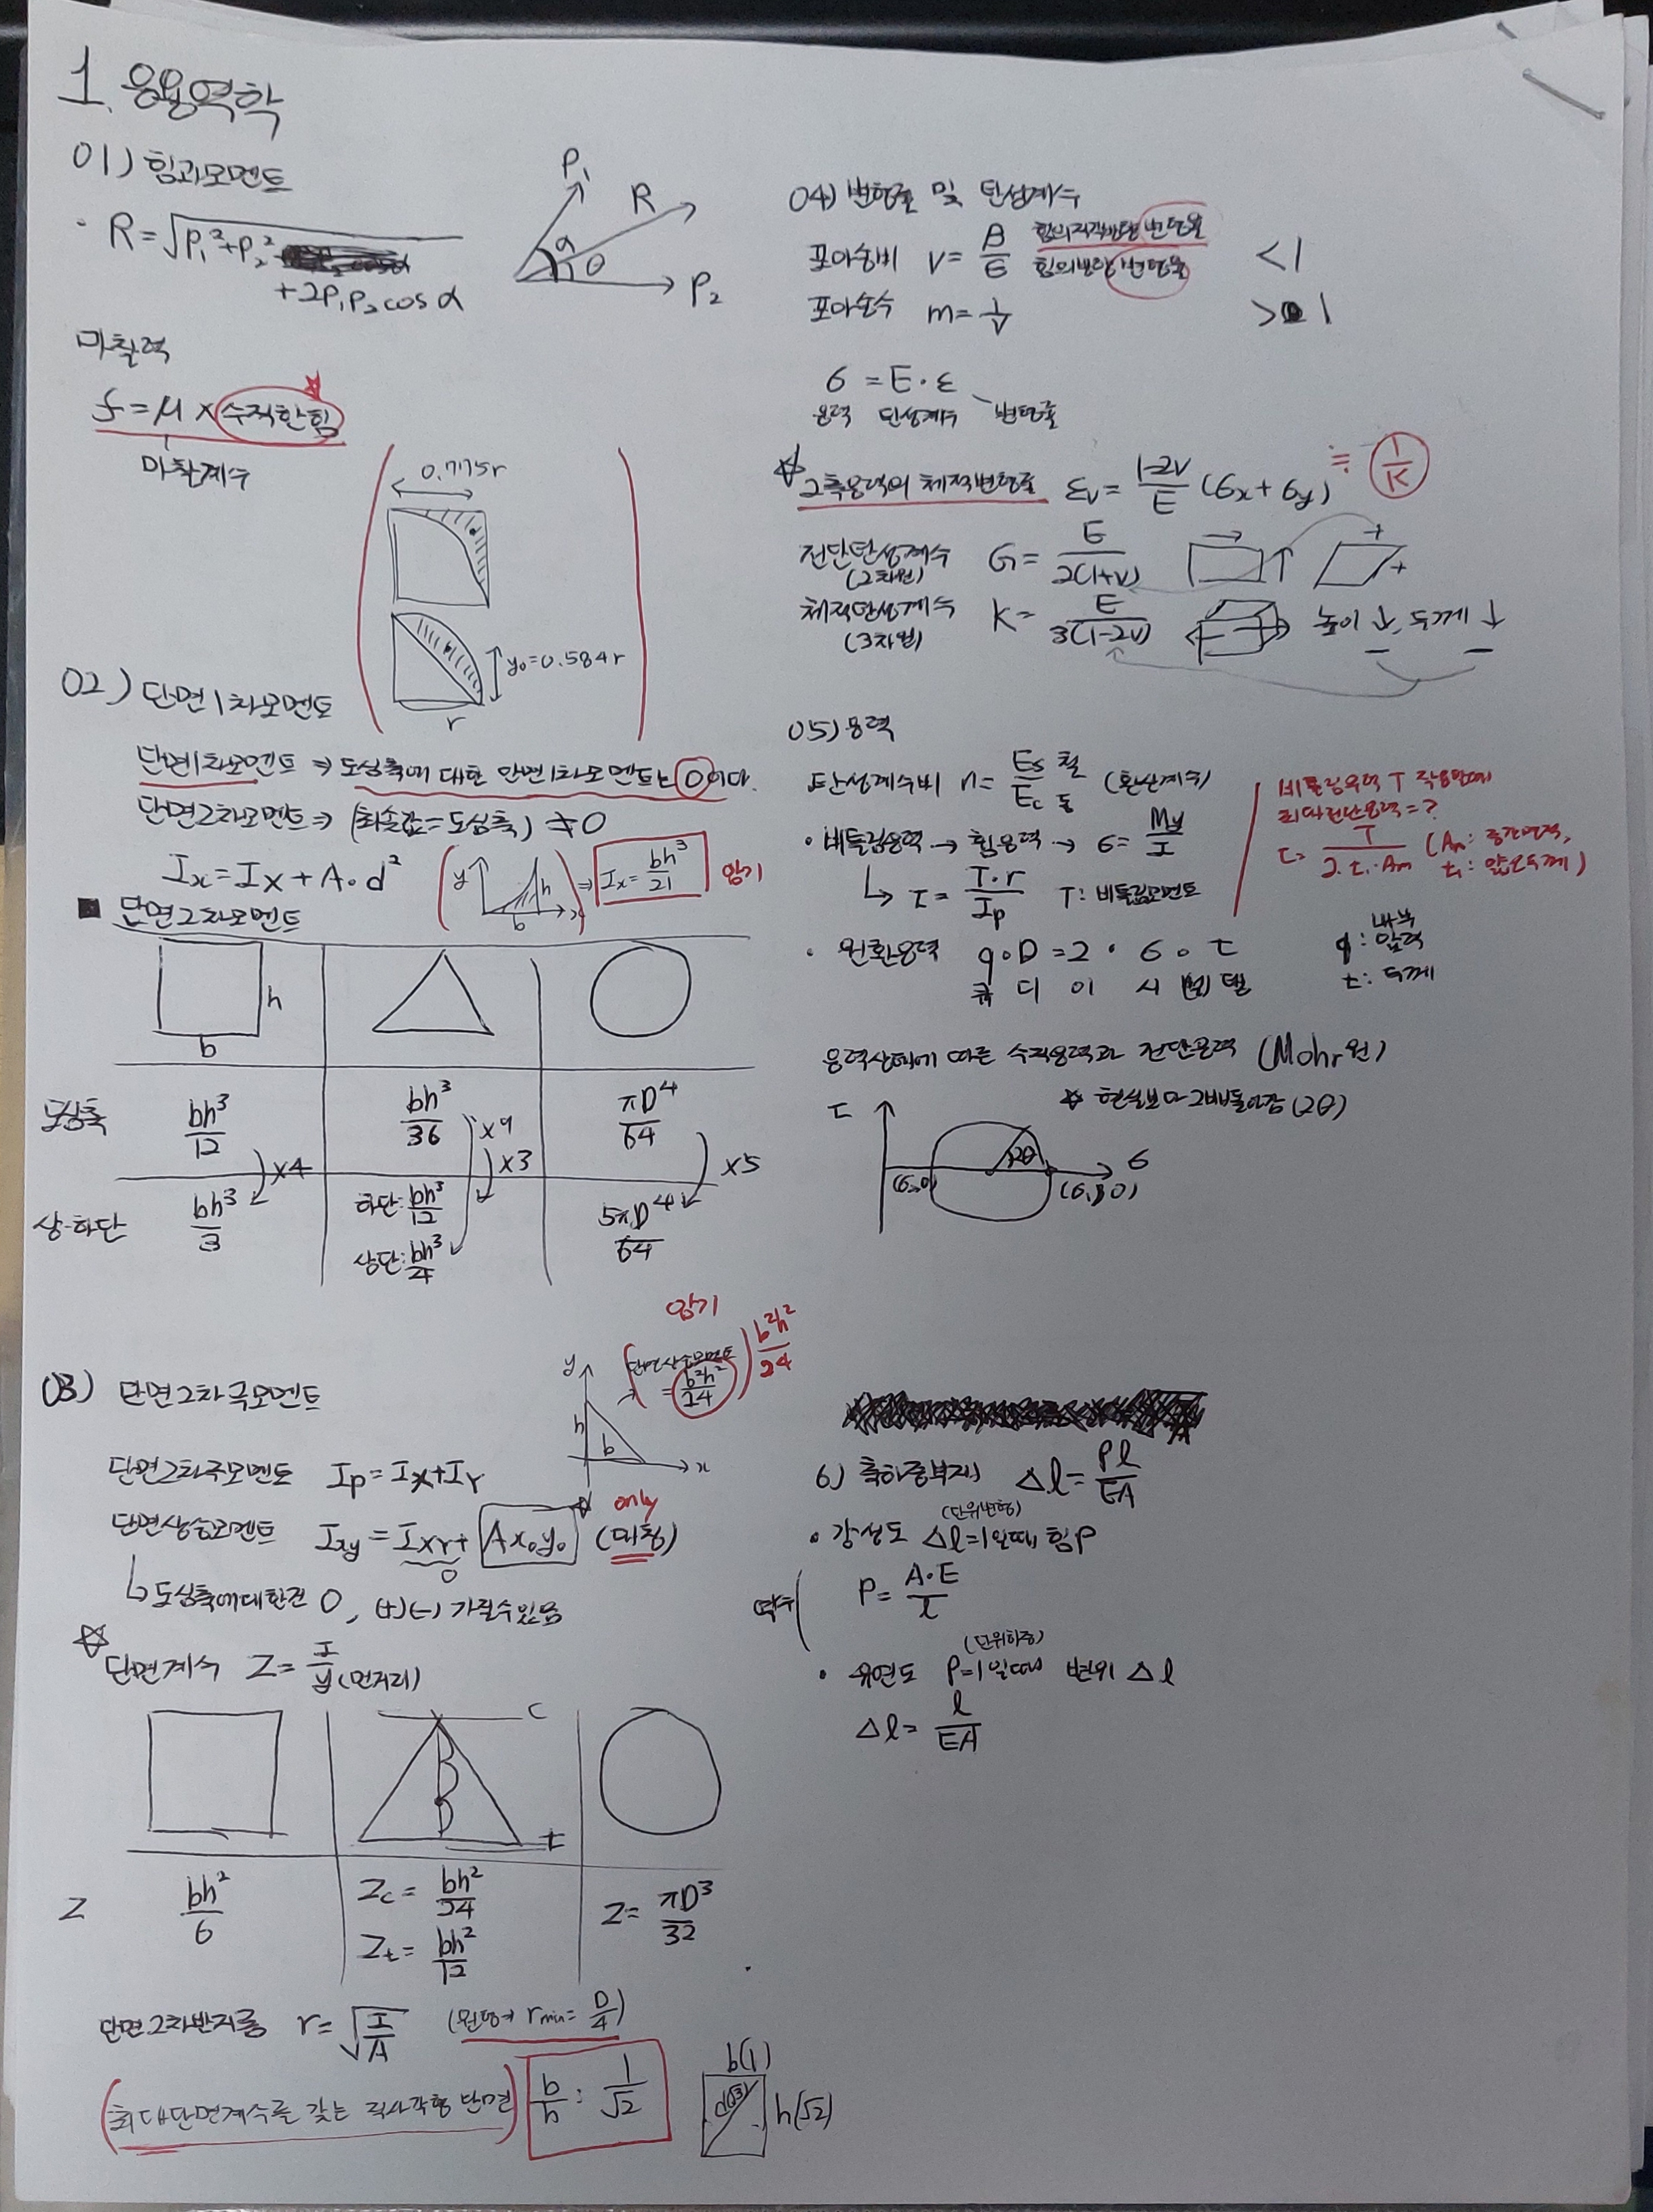 1. 응용역학
01) 힘과모멘트
· R=√P₁²+P₂²
+2P₁P₂cosα
P₁
R
α
θ
P₂
마찰력
f=μ×수직한힘
마찰계수
0.7775r
y₀=0.584r
r
02) 단면1차모멘트
단면1차모멘트 ⇒ 도심축에 대한 단면1차모멘트는 0이다.
단면2차모멘트 ⇒ (최솟값=도심축) ≠0
Ix=IX+A·d²
y
h
b
x
⇒ Ix=bh³/21
암기
■ 단면2차모멘트
h
b
도심축
bh³/12
bh³/36
πD⁴/64
×4
×9
×3
×5
상·하단
bh³/3
하단:bh³/12
상단:bh³/4
5πD⁴/64
03) 단면2차극모멘트
암기
(단면상승모멘트
=b²h²/24)
b²h²/24
y
h
b
x
단면2차극모멘트 Ip=Ix+IY
only
단면상승모멘트 Ixy=IXY+Ax₀y₀ (대칭)
0
↳도심축에대한건 0, (+)(-) 가질수있음
☆단면계수 Z=I/y(먼거리)
c
t
Z
bh²/6
Zc=bh²/24
Zt=bh²/12
Z=πD³/32
단면2차반지름 r=√I/A (원형에 rmin=D/4)
(최대단면계수를 갖는 직사각형 단면)
b/h : 1/√2
b(1)
d(√3)
h(√2)
04) 변형률 및 탄성계수
포아송비 ν=β/ε 힘의직각방향 변형율
힘의방향 변형율
<1
포아송수 m=1/ν
>1
σ=E·ε
응력 탄성계수 변형률
☆2축응력의 체적변형률 εv=1-2ν/E(σx+σy) ≒ 1/K
전단탄성계수 G=E/2(1+ν)
(2차원)
+
+
체적탄성계수 K=E/3(1-2ν)
(3차원)
높이↓, 두께↓
- -
05) 응력
탄성계수비 n=Es/Ec 철 동 (환산계수)
· 비틀림응력 → 휨응력 → σ=My/I
↳ τ=T·r/Ip T: 비틀림모멘트
비틀림우력 T 작용할때
최대전단응력=?
τ=T/2·t₁·Am (Am: 중간면적,
t₁: 얇은두께)
· 원환응력 q·D=2·σ·t
큐 디 이 시 티
q: 내부압력
t: 두께
응력상태에 따른 수직응력과 전단응력 (Mohr원)
☆ 현실보다 2배돌아감(2θ)
τ
2θ
σ
(σ₂,0)
(σ₁,0)
6) 축하중부재 Δl=Pl/EA
(단위변형)
· 강성도 Δl=1일때 힘P
P=A·E/l
역수
(단위하중)
· 유연도 P=1일때 변위 Δl
Δl=l/EA